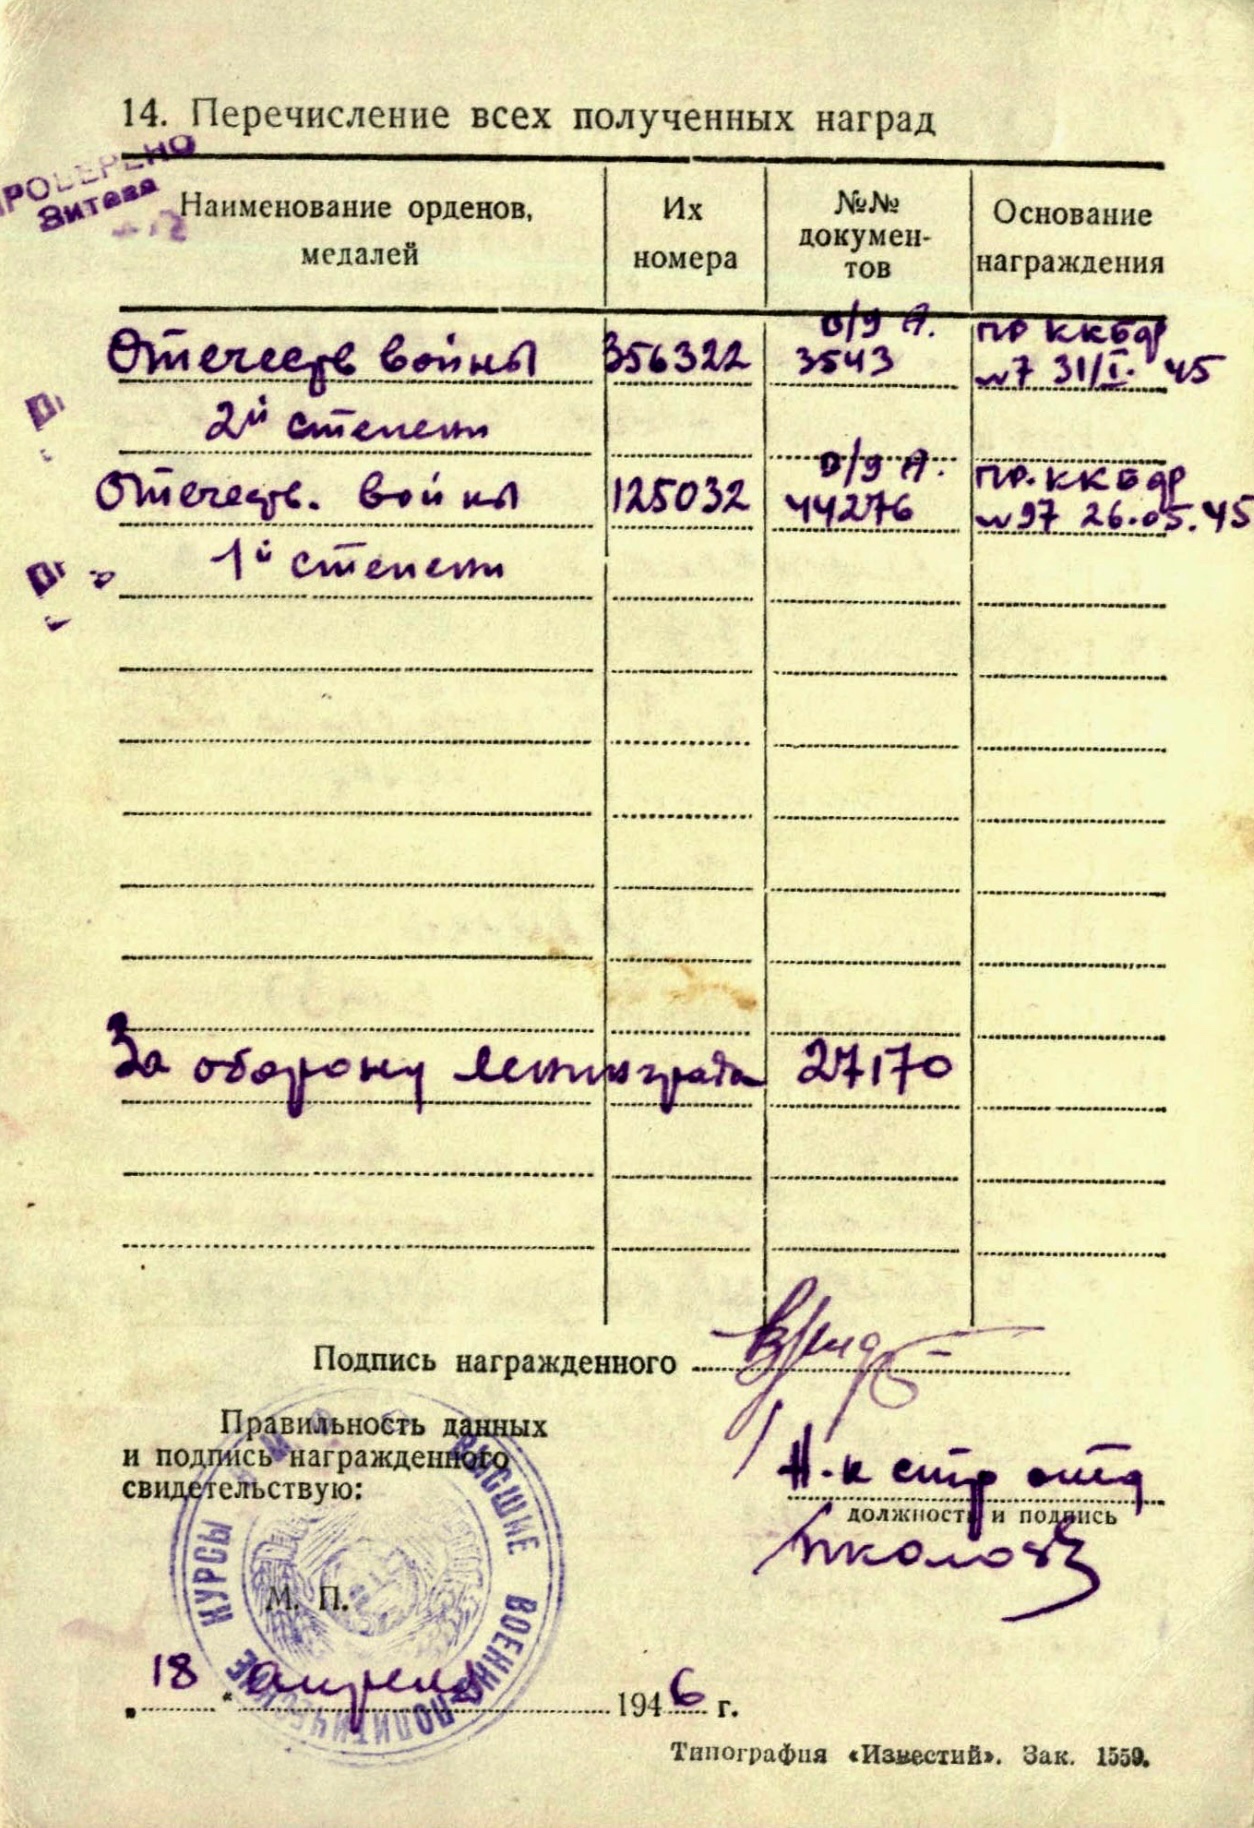 14. Перечисление всех полученных наград
ПРОВЕРЕНО
Наименование орденов,
медалей
Их
номера
№№
докумен-
тов
Основание
награждения
Отечеств войны 356322 о/у А. 3543 ПР ККБФ
№7 31/I. 45
2й степени
Отечеств. войны 125032 44276 ПР. ККБФ
№97 26.05.45
1й степени
За оборону Ленинграда 27170
Подпись награжденного
Правильность данных
и подпись награжденного
свидетельствую:
Н-к стр отд
должность и подпись
М. П.
ВЫСШИЕ ВОЕННО-ПОЛИТИЧЕСКИЕ КУРСЫ
18 " апреля 1946 г.
Типография «Известий». Зак. 1559.